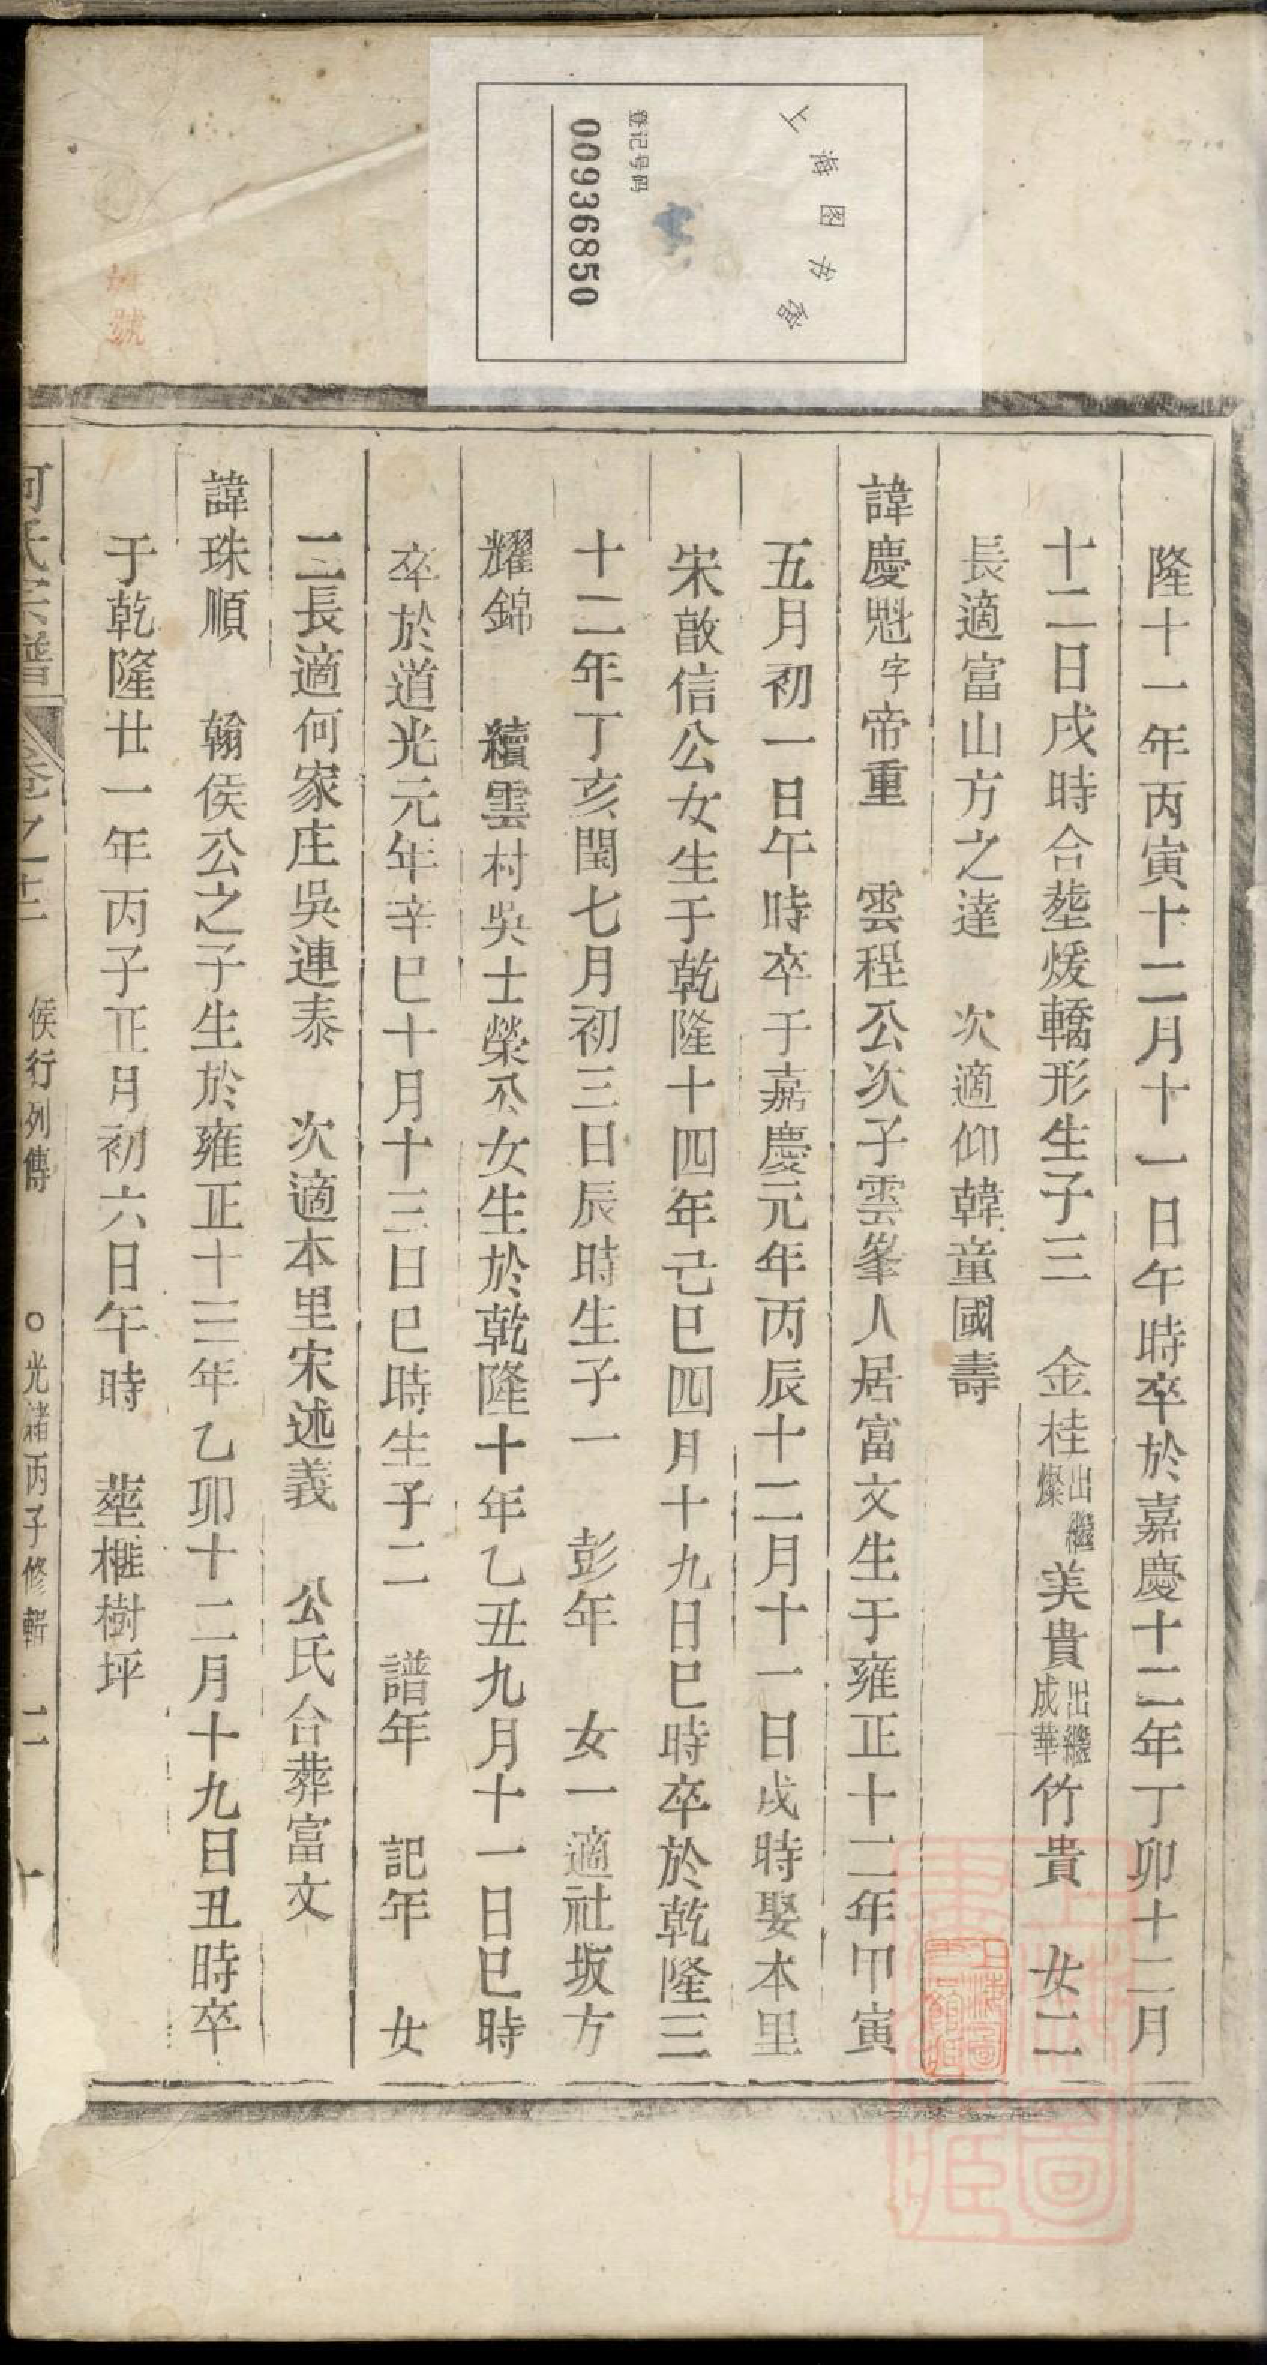 上海图书馆
登记号码
00936850
號
隆十一年丙寅十二月十一日午時卒於嘉慶十二年丁卯十二月
十二日戌時合塟煖轎形生子三 金桂出繼燦美貴出繼成華竹貴 女二
長適富山方之達 次適仰韓童國壽
諱慶魁字帝重 雲程公次子雲峯人居富文生于雍正十二年甲寅
五月初一日午時卒于嘉慶元年丙辰十二月十一日戌時娶本里
宋敳信公女生于乾隆十四年己巳四月十九日巳時卒於乾隆三
十二年丁亥閏七月初三日辰時生子一 彭年 女一適社坂方
耀錦 續雲村吳士榮公女生於乾隆十年乙丑九月十一日巳時
卒於道光元年辛巳十月十三日巳時生子二 譜年 記年 女
二長適何家庄吳連泰 次適本里宋述義 公氏合葬富文
諱珠順 翰侯公之子生於雍正十三年乙卯十二月十九日丑時卒
于乾隆廿一年丙子正月初六日午時 塟榧樹坪
何氏宗譜 卷之十二 侯行列傳 ○光緒丙子修輯 二